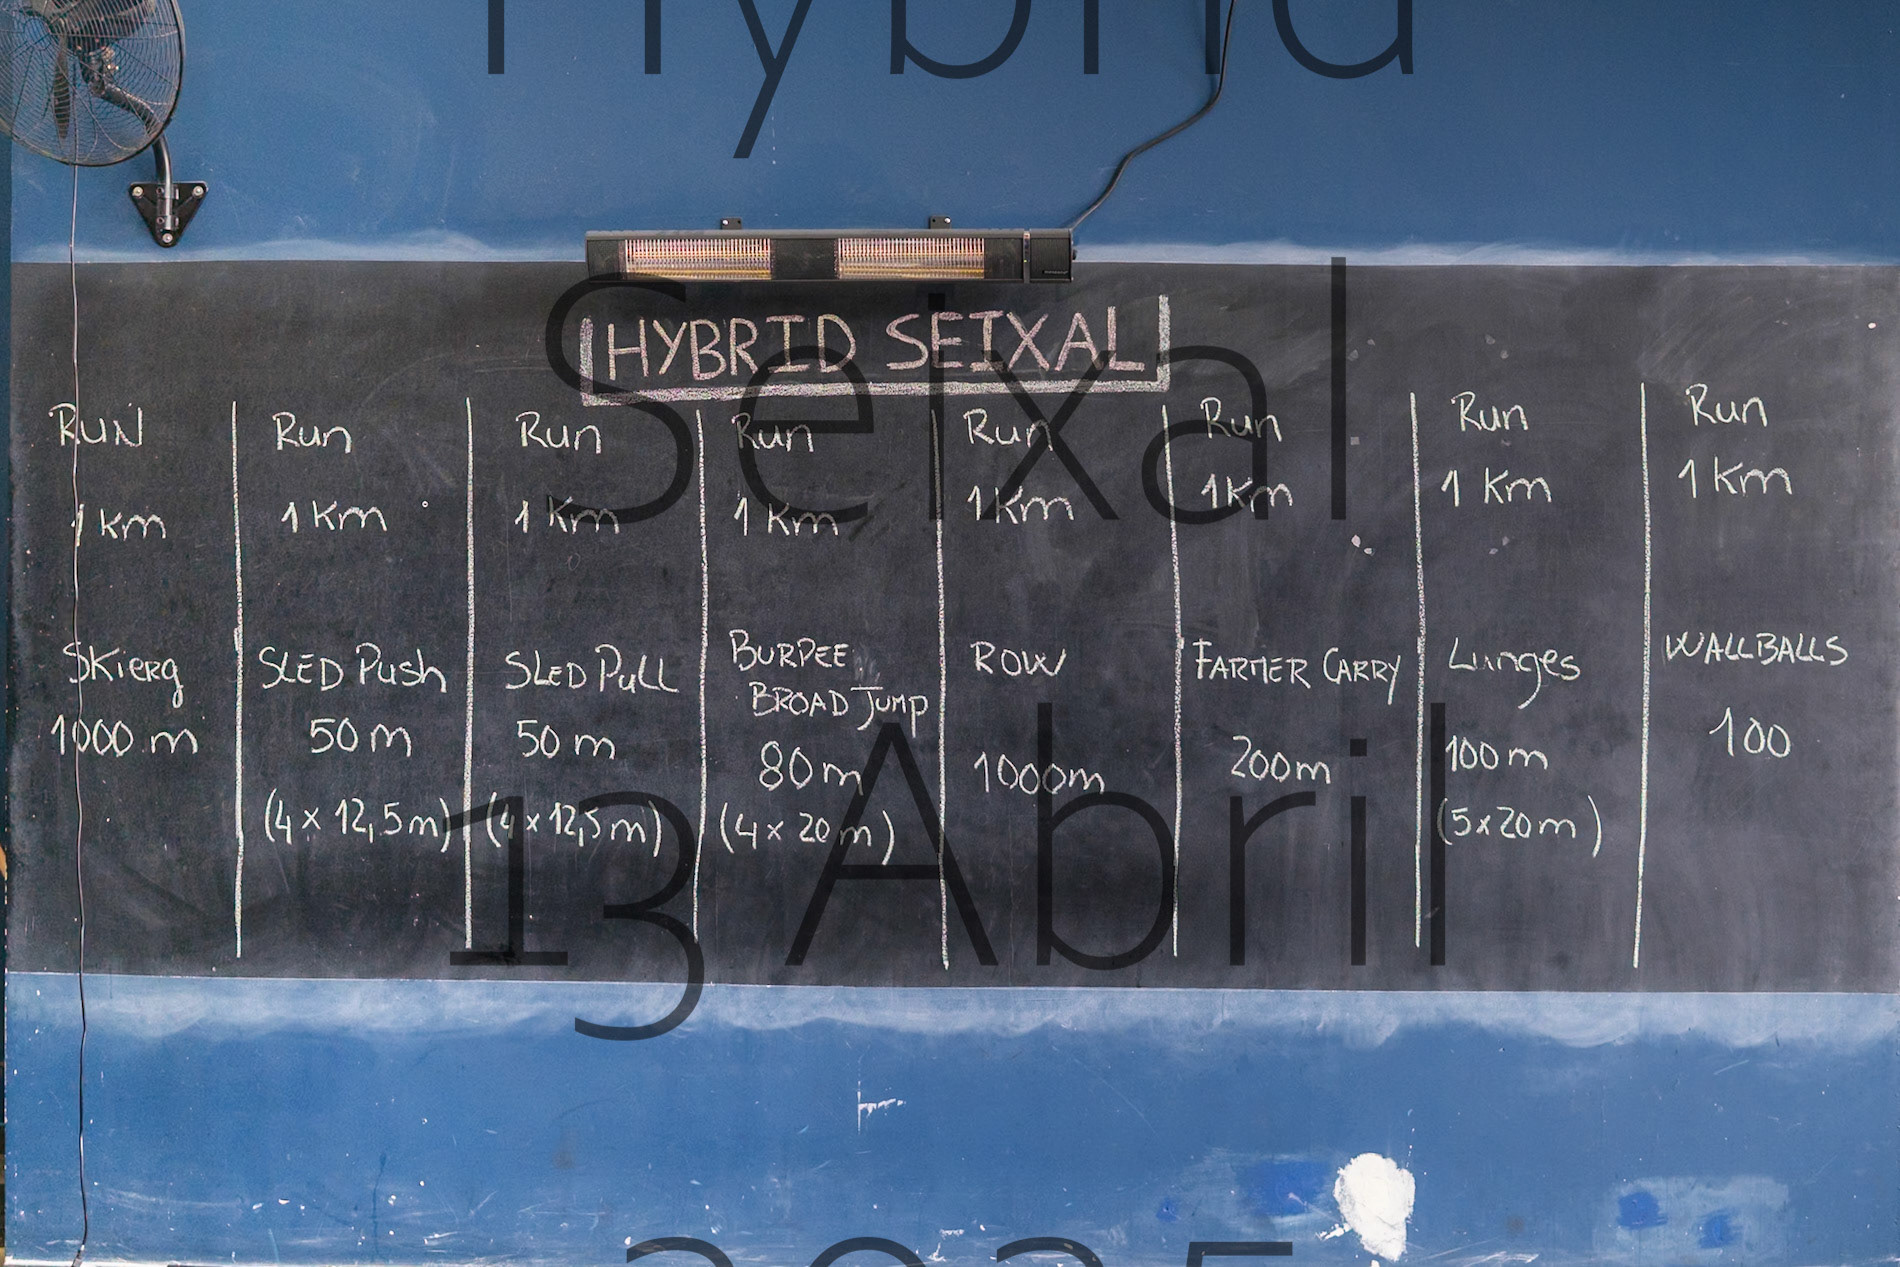 Hybrid
Seixal
13 Abril
2025
HYBRID SEIXAL
RUN
1 Km
SKierg
1000 m
Run
1 Km
SLED Push
50 m
(4 x 12,5 m)
Run
1 Km
SLED Pull
50 m
(4 x 12,5 m)
Run
1 Km
BURPEE
BROAD JUMP
80 m
(4 x 20 m)
Run
1 Km
ROW
1000m
Run
1 Km
FARMER CARRY
200m
Run
1 Km
Lunges
100 m
(5 x 20 m)
Run
1 Km
WALLBALLS
100